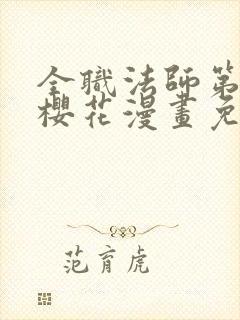 全職法師第
櫻花漫畫免
范育虎